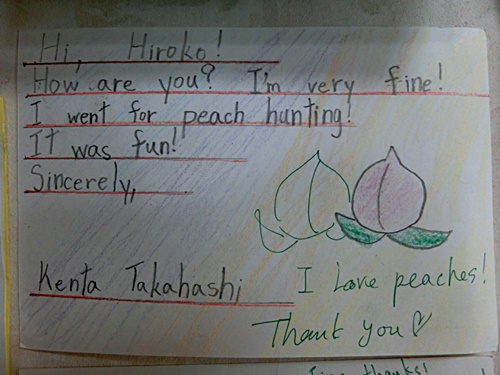 Hi, Hiroko!
How are you? I'm very fine!
I went for peach hunting!
It was fun!
Sincerely,
Kenta Takahashi
I Love peaches!
Thank you♡
thanks!